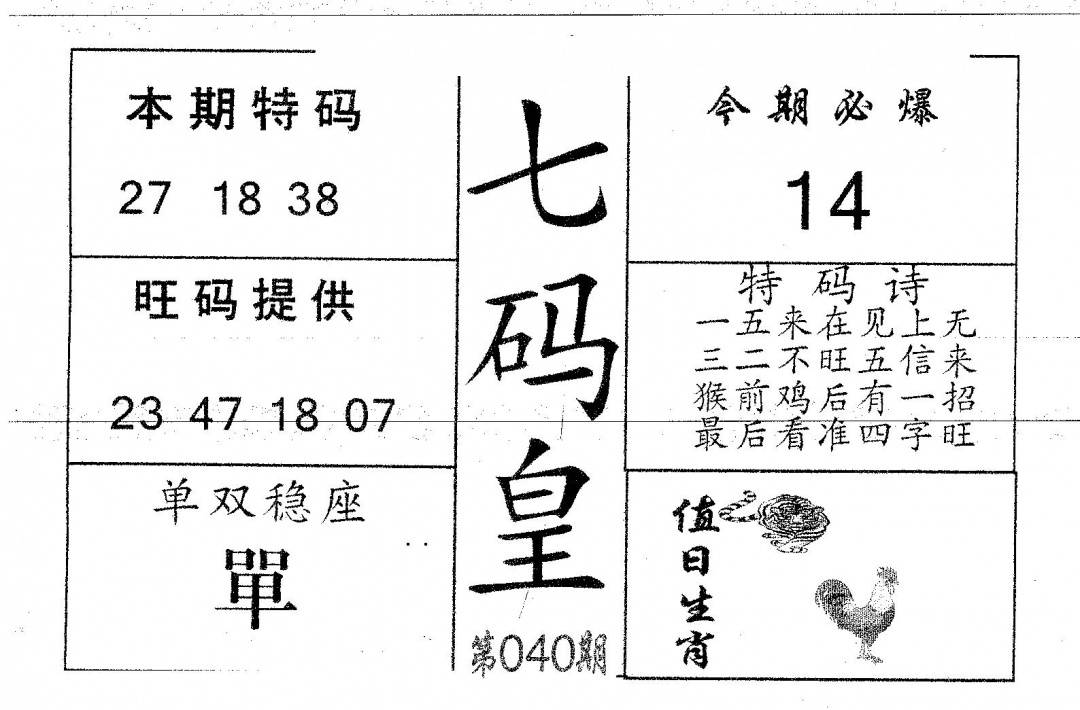 本期特码
27 18 38
旺码提供
23 47 18 07
单双稳座
單
七码皇
第040期
今期必爆
14
特码诗
一五来在见上无
三二不旺五信来
猴前鸡后有一招
最后看准四字旺
值日生肖